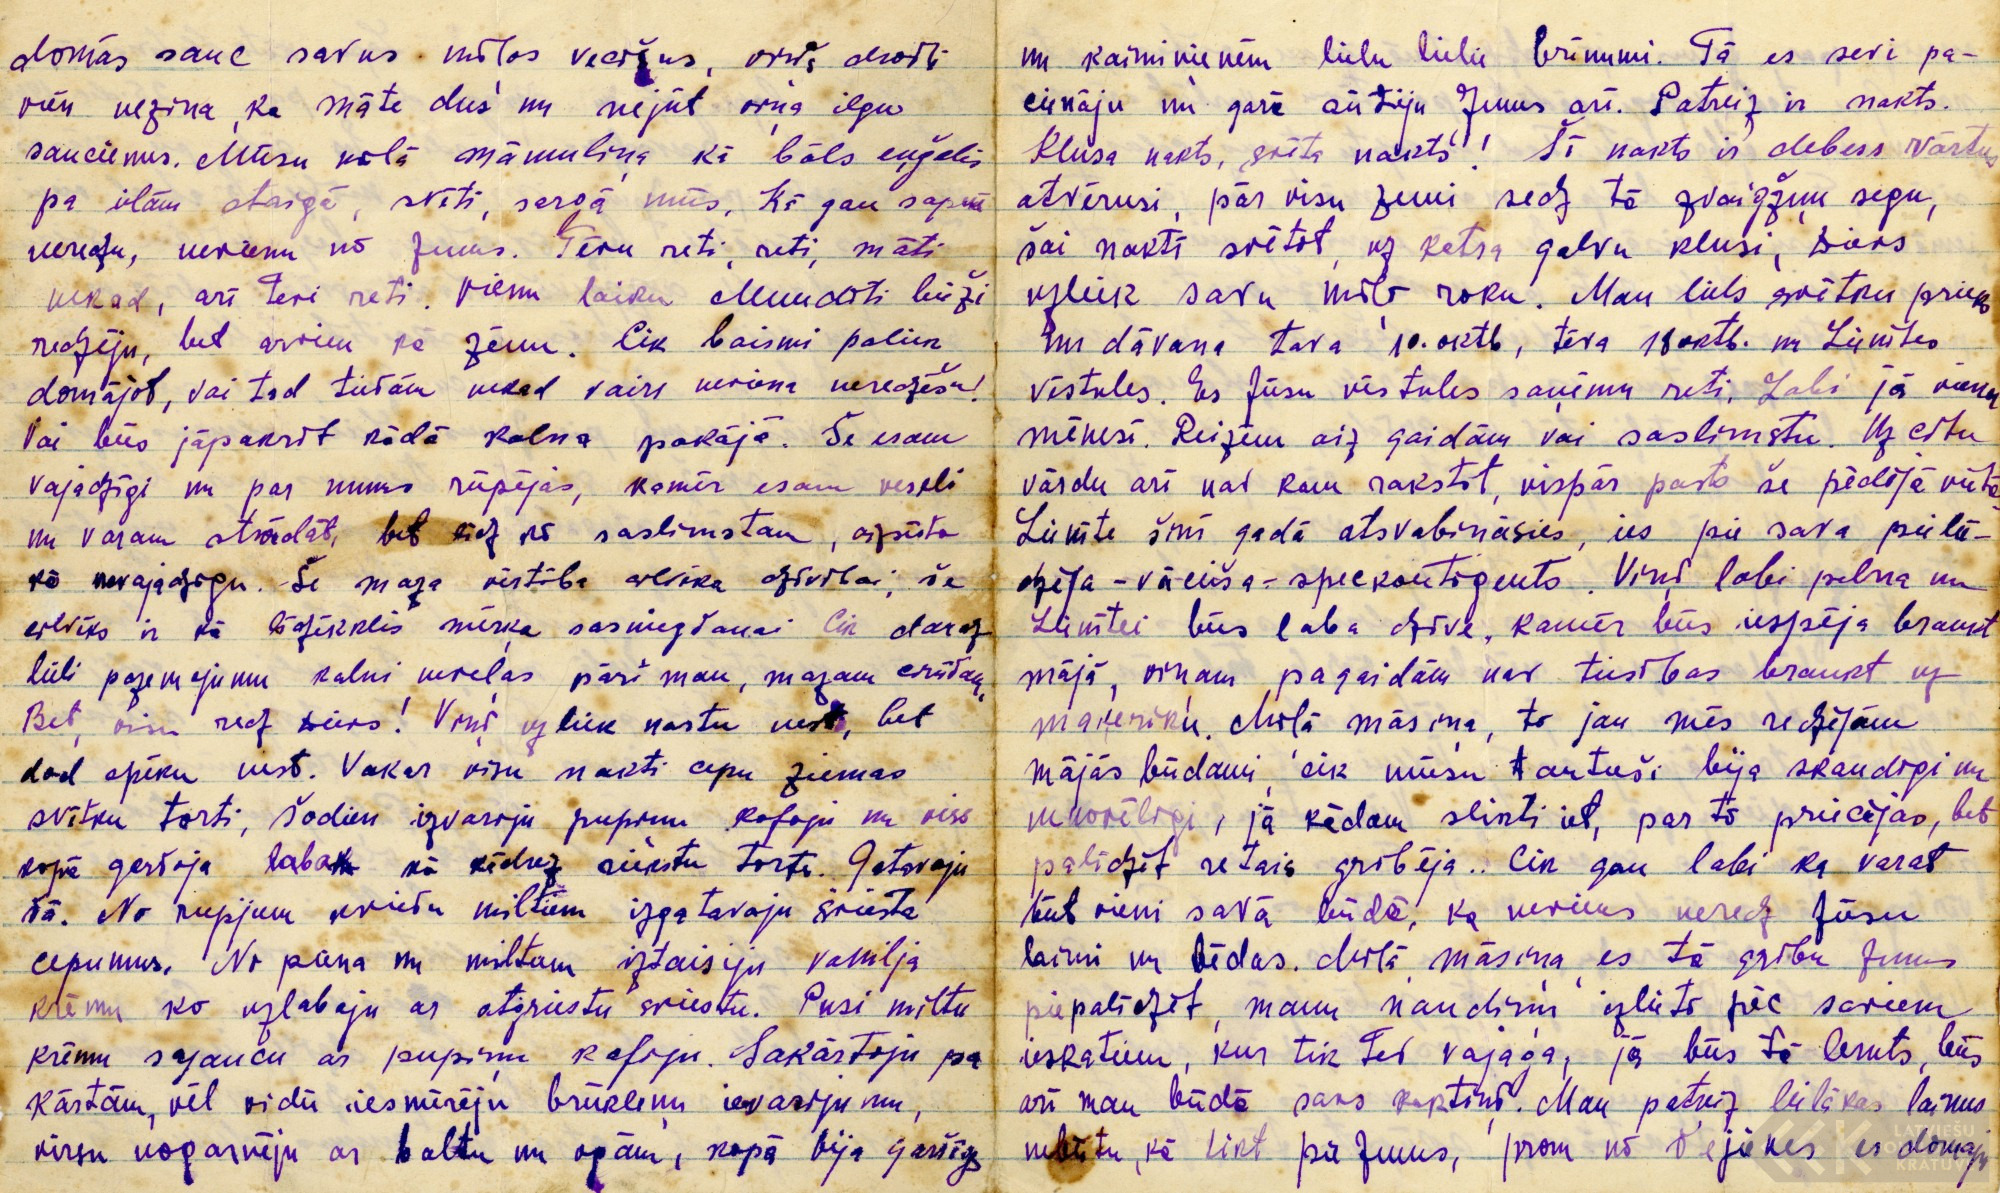 domās sauc savus mīļos vecīšus, viņš droši
vien nezina, ka māte dus un nejūt viņa ilgu
saucienus. Mūsu mīļā māmuliņa kā bāls eņģelis
pa ielām staigā, svētī, sargā mūs. Kā gan sapnī
neredzu, nevienu no Jums. Tēvu reti, reti, māti
nekad, arī Tevi reti. Vienu laiku Mundīti bieži
redzēju, bet arvien kā zēnu. Cik baismi paliek
domājot, vai tad tiešām nekad vairs neviena neredzēšu!
Vai būs jāpakrīt kādā kalna pakājā. Še esam
vajadzīgi un par mums rūpējas, kamēr esam veseli
un varam strādāt, bet līdz ko saslimstam, aizsūta
kā nevajadzīgu. Še maza vērtība cilvēka dzīvībai, še
cilvēks ir kā līdzeklis mērķa sasniegšanai. Cik daudz
lieli pazemojumu kalni nevelas pāri man, mazam cīrulim.
Bet, visu redz Dievs! Viņš uzliek nastu nest, bet
dod spēku nest. Vakar visu nakti cepu ziemas
svētku torti, šodien izvārīju pupiņu kafeju un viss
kopā garšoja labāk kā kādreiz riekstu torte. Gatavoju
tā. No rupjiem kviešu miltiem izgatavoju sviesta
cepumus. No piena un miltiem iztaisīju vaniļja
krēmu ko uzlaboju ar atgrieztu sviestu. Pusi miltu
krēmu sajaucu ar pupiņu kafeju. Sakārtoju pa
kārtām, vēl vidū iesmērēju brūkleņu ievārījumu,
virsu nogarnēju ar baltu un ogām, kopā bija garšīgs
un kaimiņienēm lielu lielie brīnumi. Tā es sevi pa-
cienāju un garā aicināju Jums arī. Patreiz ir nakts.
Klusa nakts, svēta nakts! Šī nakts ir debess vārtus
atvērusi, pār visu zemi sedz tā zvaigžņu segu,
šai naktī svētot, uz katra galvu klusi, Dievs
uzliek savu mīļo roku. Man liels svētku prieks
un dāvana tava 10. oktb, tēva 18 oktb. un Lienītes
vēstules. Es Jūsu vēstules saņemu reti. Labi ja vienu
mēnesī. Reizēm aiz gaidām vai saslimstu. Uz citu
vārdu arī nav kam rakstīt, vispār pasts še pēdējā vietā.
Lienīte šinī gadā atsvabināsies, ies pie sava pielū-
dzēja - vācieša - speckontigents. Viņš labi pelna un
Lienītei būs laba dzīve, kamēr būs iespēja braukt
mājā, viņam pagaidām nav tiesības braukt uz
materiku. Mīļā māsiņa, to jau mēs redzējām
mājās būdami, cik mūsu tautieši bija skaudīgi un
nenovēlīgi, ja kādam slikti iet, par to priecājas, bet
palīdzēt retais gribēja.. Cik gan labi ka varat
būt vieni savā būdā, ka neviens neredz Jūsu
laimi un bēdas. Mīļā māsiņa, es tā gribu Jums
piepalīdzēt, manu naudiņu izlieto pēc saviem
ieskatiem, kur tik Tev vajaga, ja būs tā lemts, būs
arī man būdā savs kaktiņš. Man patreiz lielākas laimes
nebūtu, kā tikt pie Jums, prom no es domāju
LATVIEŠU
KRĀTUVE